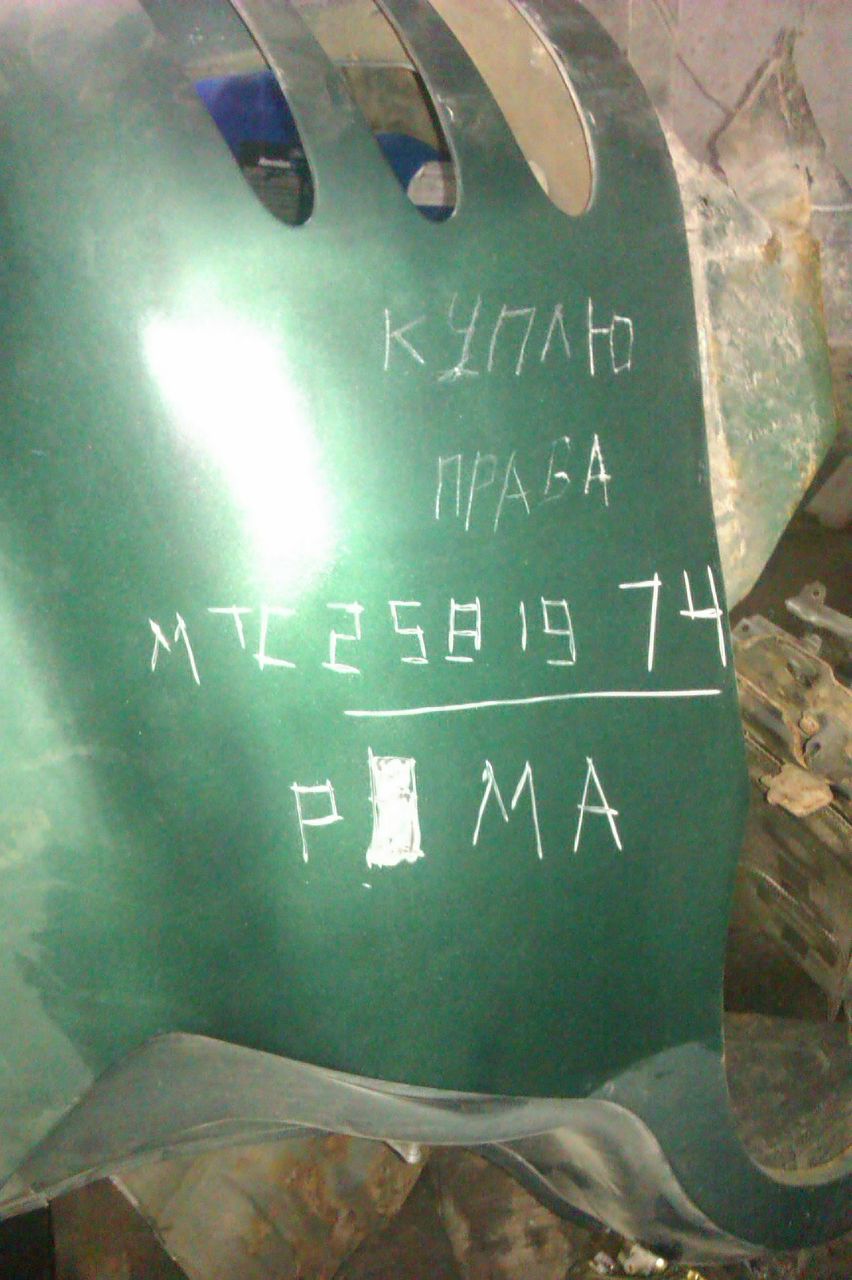 КУПЛЮ
ПРАВА
МТС 25819 74
Р МА